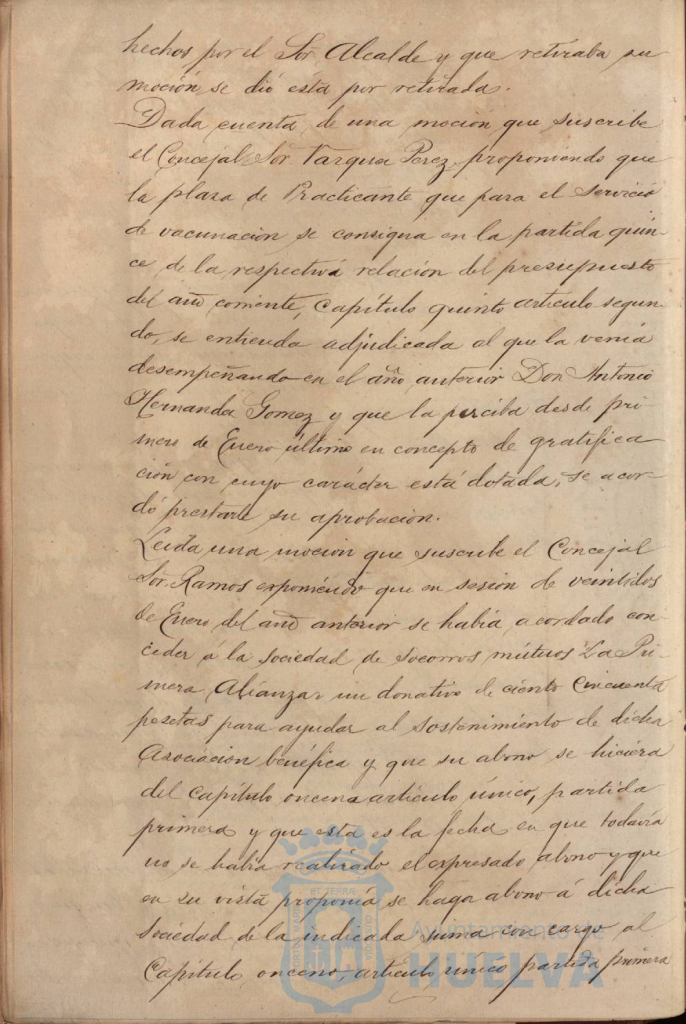 hechos por el Sor. Alcalde y que retiraba su
moción se dió ésta por retirada.
Dada cuenta de una moción que suscribe
el Concejal Sor Vazquez Perez proponiendo que
la plaza de Practicante que para el servicio
de vacunacion se consigna en la partida quin-
ce de la respectiva relación del presupuesto
del año corriente, Capítulo quinto artículo segun-
do, se entienda adjudicada al que la venia
desempeñando en el año anterior Don Antonio
Hernandez Gomez y que la perciba desde pri-
mero de Enero último en concepto de gratifica-
ción con cuyo carácter está dotada, se acor-
dó prestarle su aprobacion.
Leida una moción que suscribe el Concejal
Sor. Ramos exponiendo que en sesión de veintidos
de Enero del año anterior se había acordado con-
ceder á la sociedad de socorros mútuos La Pri-
mera Alianza un donativo de ciento cincuenta
pesetas para ayudar al sostenimiento de dicha
Asociacion benéfica y que su abono se hiciera
del Capítulo onceno artículo único, partida
primera y que esta es la fecha en que todavía
no se había realizado el expresado abono y que
en su vista proponía se haga abono á dicha
Sociedad de la indicada suma con cargo al
Capítulo onceno, artículo único partida primera
Ayuntamiento de
HUELVA